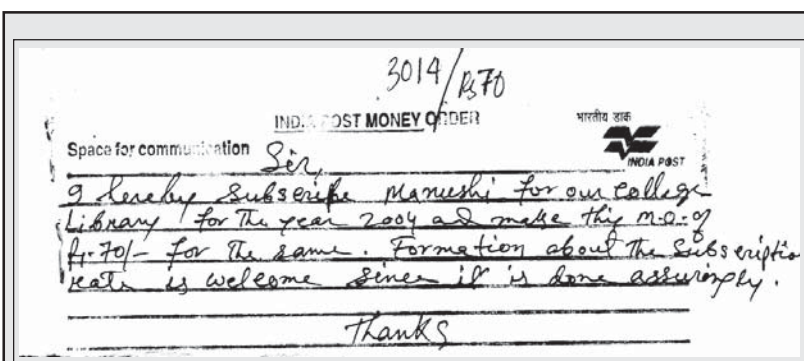 3014/Rs70
INDIA POST MONEY ORDER
भारतीय डाक
INDIA POST
Space for communication
Sir,
I hereby Subscribe Manushi for our College
Library for the year 2004 and make this M.O. of
Rs. 70/- for the same. Formation about the Subscriptio
rate is welcome since it is done assumingly.
Thanks